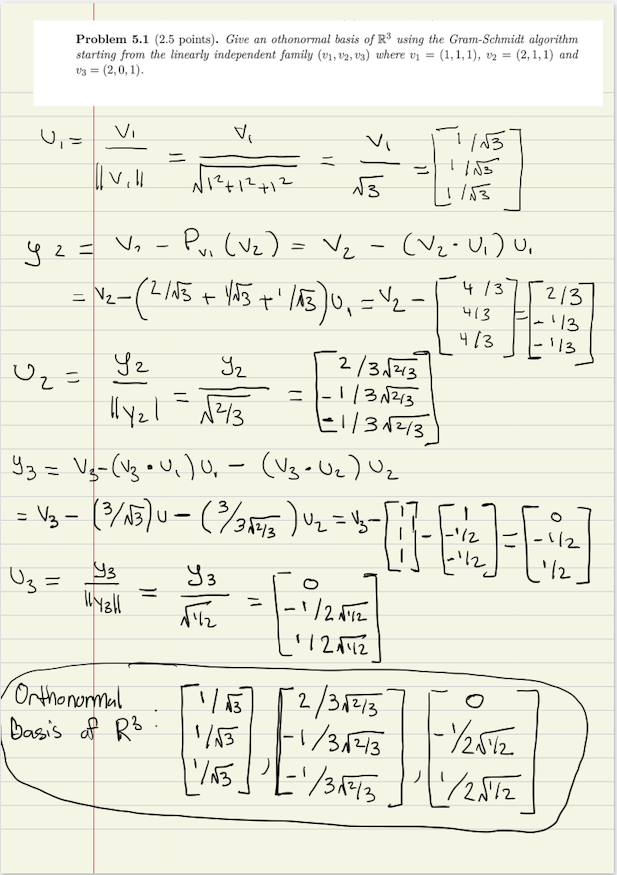 Problem 5.1 (2.5 points). Give an othonormal basis of ℝ³ using the Gram-Schmidt algorithm
starting from the linearly independent family (v₁, v₂, v₃) where v₁ = (1, 1, 1), v₂ = (2, 1, 1) and
v₃ = (2, 0, 1).
U₁ = V₁/||V₁|| = V₁/√(1²+1²+1²) = V₁/√3 = [1/√3, 1/√3, 1/√3]
y2 = V₂ − Pv₁(V2) = V2 − (V2·U₁)U₁
= V2−(2/√3 + 1/√3 + 1/√3)U₁ = V2 − [4/3, 4/3, 4/3] = [2/3, −1/3, −1/3]
U2 = y2/||y2| = y2/√2/3 = [2/3√2/3, −1/3√2/3, −1/3√2/3]
y3 = V3−(V3·U₁)U₁ − (V3·U2)U2
= V3 − (3/√3)U − (3/3√2/3)U2 = V3−[1, 1, 1] − [1, −1/2, −1/2] = [0, −1/2, 1/2]
U3 = y3/||y3|| = y3/√1/2 = [0, −1/2√1/2, 1/2√1/2]
Orthonormal
Basis of R³ : [1/√3, 1/√3, 1/√3], [2/3√2/3, −1/3√2/3, −1/3√2/3], [0, −1/2√1/2, 1/2√1/2]